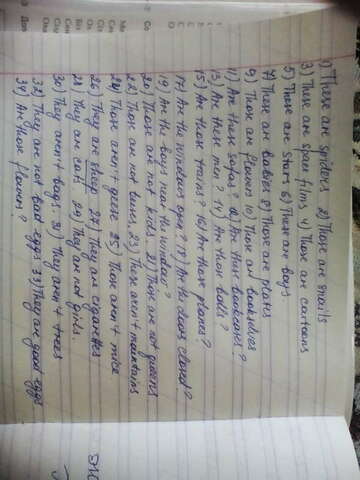 1) These are spiders. 2) Those are snails
3) These are space films. 4) Those are cartoons
5) These are short 6) These are boys
7) These are babies 8) Those are plates
9) Those are flowers 10) Those are bookselves
11) Are these sofas? 12) Are these bookcases?
13) Are these men? 14) Are those balls?
15) Are those trains? 16) Are those planes?
17) Are the windows open? 18) Are the doors closed?
19) Are the boys near the window?
20) Those are not kids. 21) Those are not queens
22) Those are not buses. 23) These aren't mountains
24) Those aren't geese 25) Those aren't mice
26) They are sheep 27) They are cigarettes
28) They are cats. 29) They are not girls.
30) They aren't bags. 31) They aren't trees
32) They are not bad eggs 33) They are good eggs
34) Are those flowers?